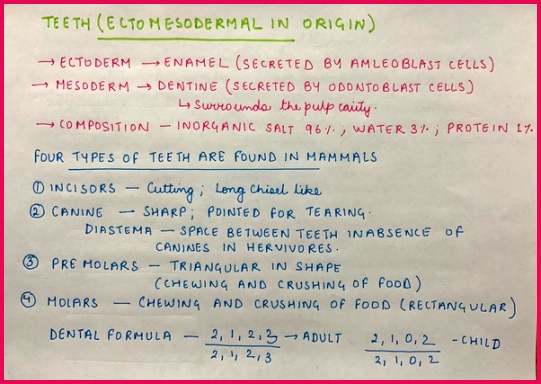 TEETH (ECTOMESODERMAL IN ORIGIN)
→ ECTODERM → ENAMEL (SECRETED BY AMLEOBLAST CELLS)
→ MESODERM → DENTINE (SECRETED BY ODONTOBLAST CELLS)
↳ Surrounds the pulp cavity.
→ COMPOSITION – INORGANIC SALT 96%; WATER 3%; PROTEIN 1%
FOUR TYPES OF TEETH ARE FOUND IN MAMMALS
① INCISORS – Cutting; Long Chisel like
② CANINE – SHARP; POINTED FOR TEARING.
DIASTEMA – SPACE BETWEEN TEETH IN ABSENCE OF
CANINES IN HERVIVORES.
③ PRE MOLARS – TRIANGULAR IN SHAPE
(CHEWING AND CRUSHING OF FOOD)
④ MOLARS – CHEWING AND CRUSHING OF FOOD (RECTANGULAR)
DENTAL FORMULA – 2, 1, 2, 3 → ADULT 2, 1, 0, 2 - CHILD
2, 1, 2, 3 2, 1, 0, 2